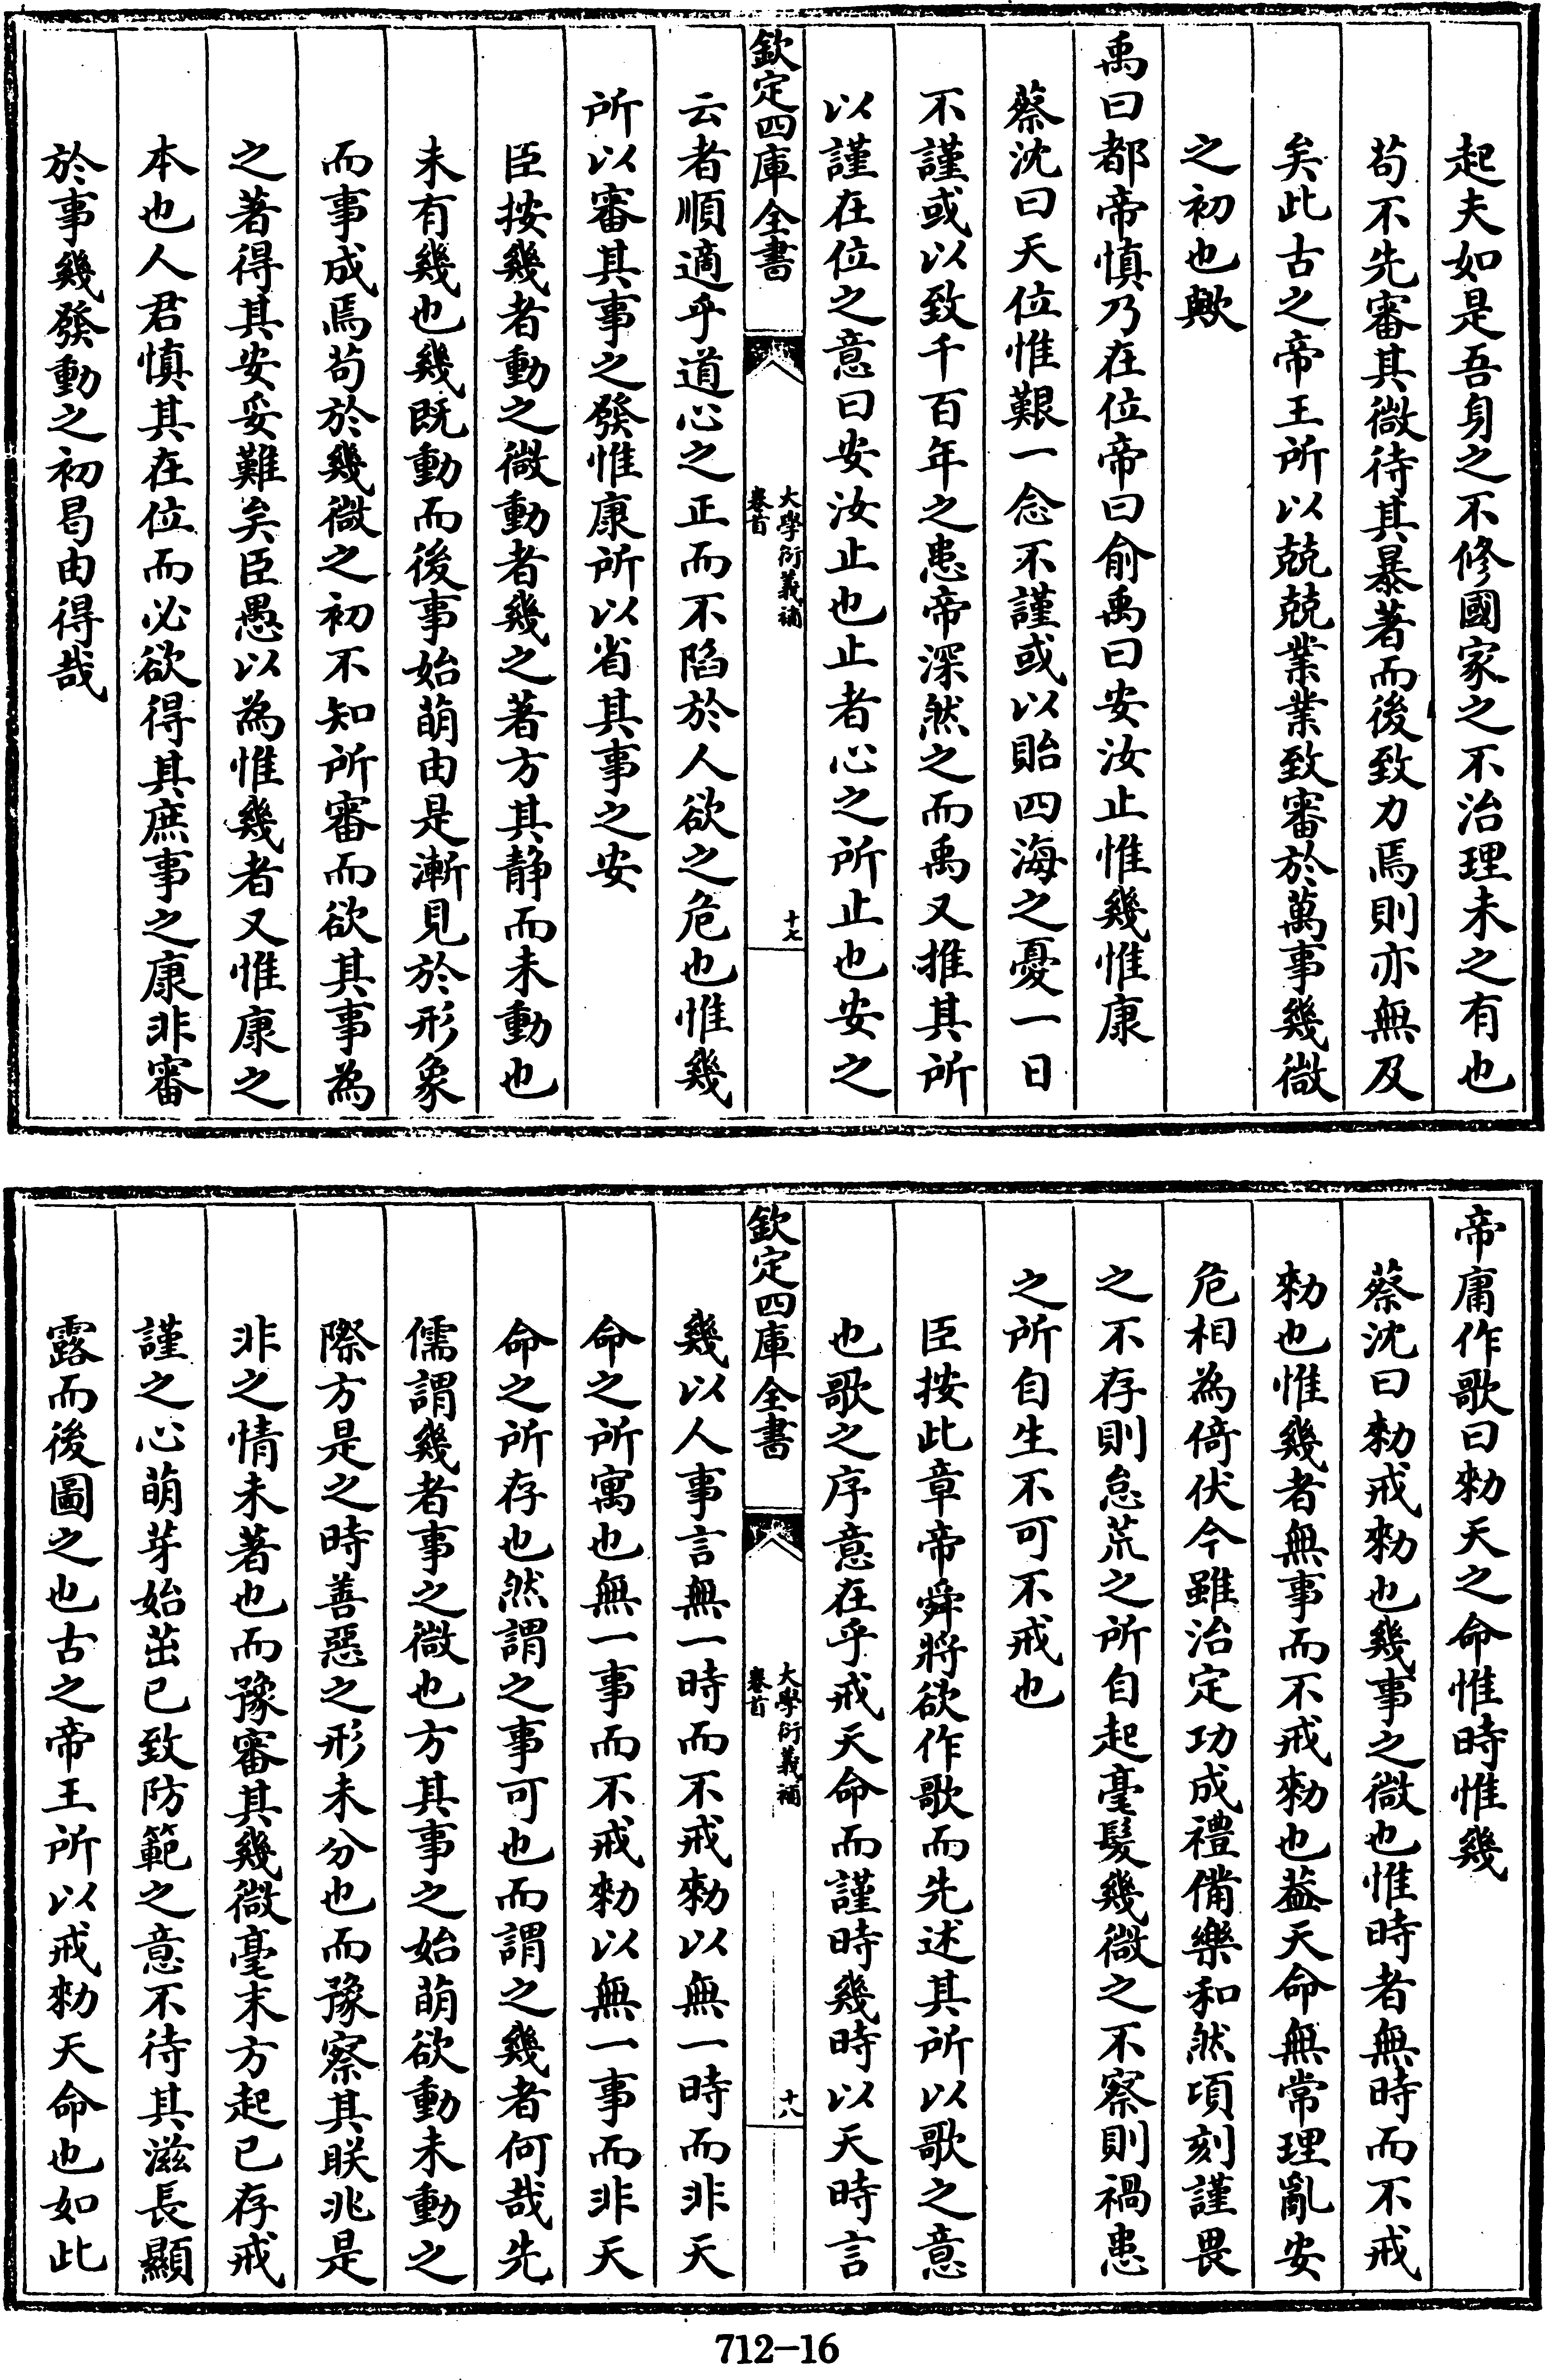 起夫如是吾身之不修國家之不治理未之有也
苟不先審其微待其暴著而後致力焉則亦無及
矣此古之帝王所以兢兢業業致審於萬事幾微
之初也歟
禹曰都帝慎乃在位帝曰俞禹曰安汝止惟幾惟康
蔡沈曰天位惟艱一念不謹或以貽四海之憂一日
不謹或以致千百年之患帝深然之而禹又推其所
以謹在位之意曰安汝止也止者心之所止也安之
欽定四庫全書
大學衍義補
卷首
十七
云者順適乎道心之正而不陷於人欲之危也惟幾
所以審其事之發惟康所以省其事之安
臣按幾者動之微動者幾之著方其静而未動也
未有幾也幾既動而後事始萌由是漸見於形象
而事成焉苟於幾微之初不知所審而欲其事為
之著得其安妥難矣臣愚以為惟幾者又惟康之
本也人君慎其在位而必欲得其庶事之康非審
於事幾發動之初曷由得哉
帝庸作歌曰勑天之命惟時惟幾
蔡沈曰勑戒勑也幾事之微也惟時者無時而不戒
勑也惟幾者無事而不戒勑也葢天命無常理亂安
危相為倚伏今雖治定功成禮備樂和然頃刻謹畏
之不存則怠荒之所自起毫髮幾微之不察則禍患
之所自生不可不戒也
臣按此章帝舜將欲作歌而先述其所以歌之意
也歌之序意在乎戒天命而謹時幾時以天時言
欽定四庫全書
大學衍義補
卷首
十八
幾以人事言無一時而不戒勑以無一時而非天
命之所寓也無一事而不戒勑以無一事而非天
命之所存也然謂之事可也而謂之幾者何哉先
儒謂幾者事之微也方其事之始萌欲動未動之
際方是之時善惡之形未分也而豫察其眹兆是
非之情未著也而豫審其幾微毫末方起已存戒
謹之心萌芽始茁已致防範之意不待其滋長顯
露而後圖之也古之帝王所以戒勑天命也如此
712-16